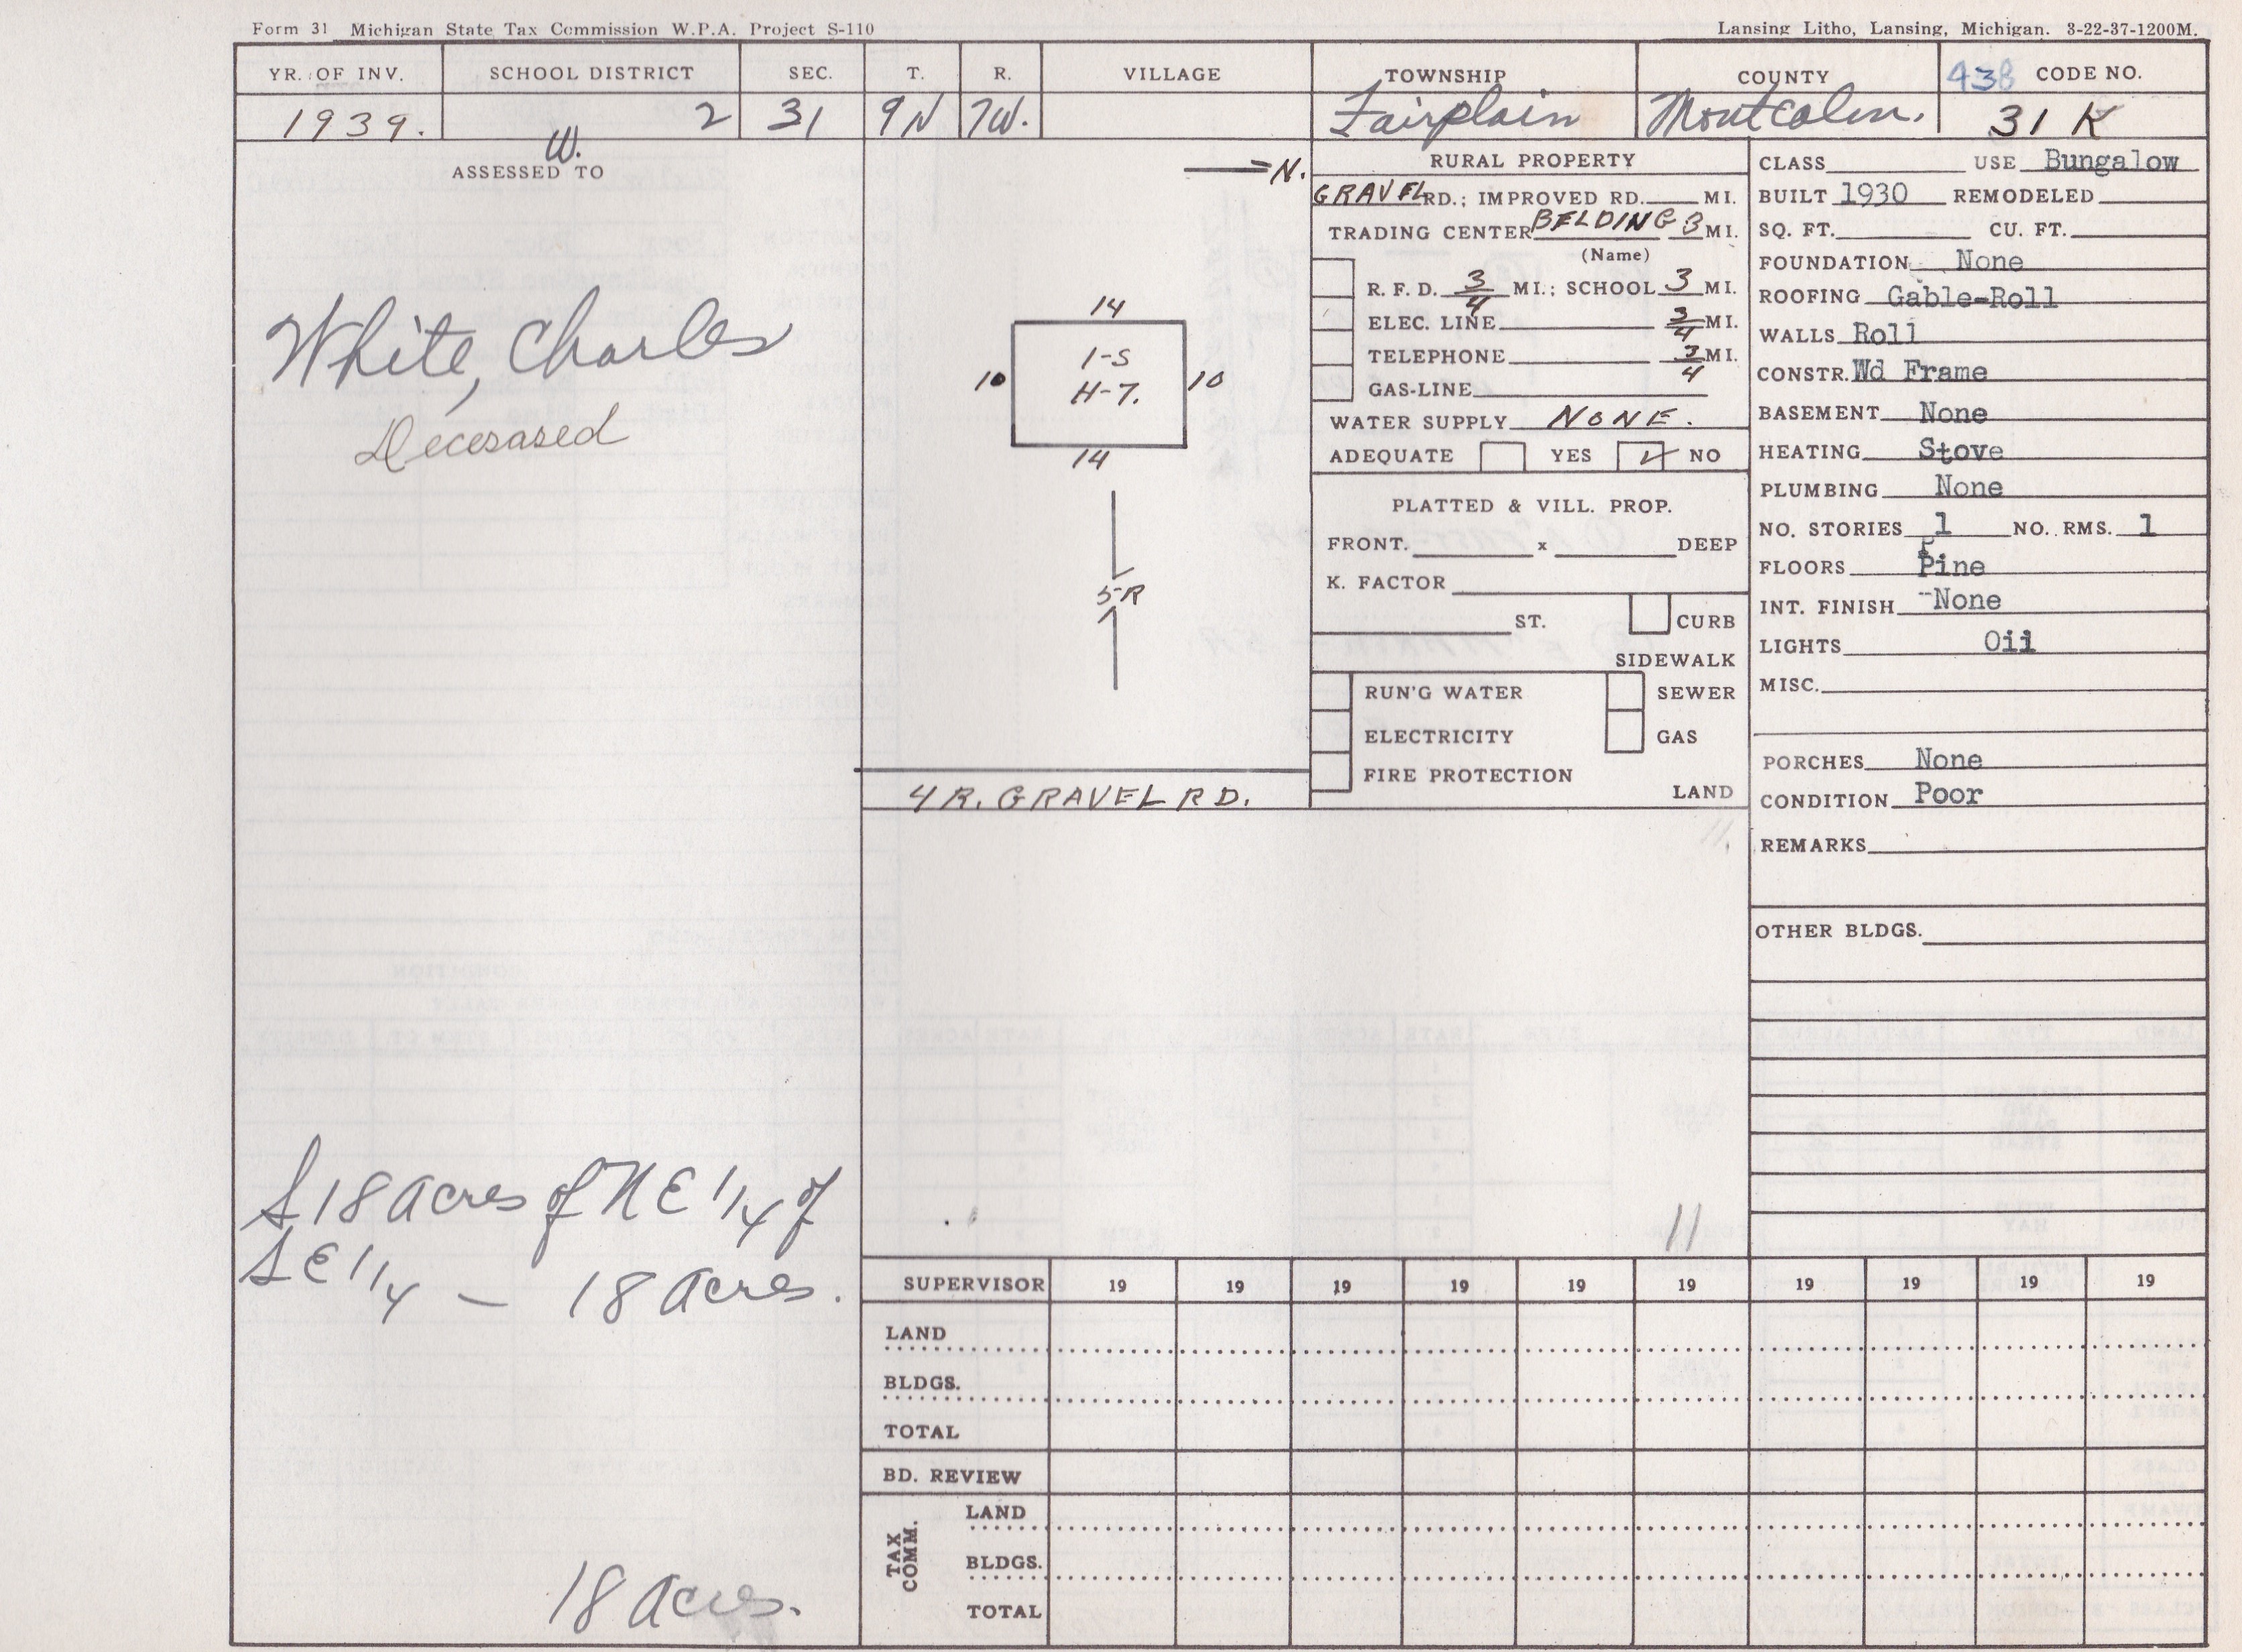 Form 31 Michigan State Tax Commission W.P.A. Project S-110
Lansing Litho, Lansing, Michigan. 3-22-37-1200M.
YR. OF INV. SCHOOL DISTRICT SEC. T. R. VILLAGE TOWNSHIP COUNTY 438 CODE NO.
1939. 2 31 9N 7W. Fairplain Montcalm. 31 K
W.
ASSESSED TO
White, Charles
Decesased
S 18 acres of NE 1/4 of
SE 1/4 — 18 acres.
18 acres.
N.
14
10 1-S 10
H-7.
14
5-R
4 R. GRAVEL RD.
RURAL PROPERTY
GRAVEL RD.; IMPROVED RD. MI.
TRADING CENTER BELDING 3 MI.
(Name)
R. F. D. 3/4 MI.; SCHOOL 3 MI.
ELEC. LINE 3/4 MI.
TELEPHONE 3/4 MI.
GAS-LINE
WATER SUPPLY NONE.
ADEQUATE YES ✓ NO
PLATTED & VILL. PROP.
FRONT. x DEEP
K. FACTOR
ST. CURB
SIDEWALK
RUN'G WATER SEWER
ELECTRICITY GAS
FIRE PROTECTION
LAND
11.
11
CLASS USE Bungalow
BUILT 1930 REMODELED
SQ. FT. CU. FT.
FOUNDATION None
ROOFING Gable-Roll
WALLS Roll
CONSTR. Wd Frame
BASEMENT None
HEATING Stove
PLUMBING None
NO. STORIES 1 NO. RMS. 1
FLOORS Pine
INT. FINISH None
LIGHTS Oil
MISC.
PORCHES None
CONDITION Poor
REMARKS
OTHER BLDGS.
SUPERVISOR 19 19 19 19 19 19 19 19 19 19
LAND
BLDGS.
TOTAL
BD. REVIEW
TAX COMM.
LAND
BLDGS.
TOTAL